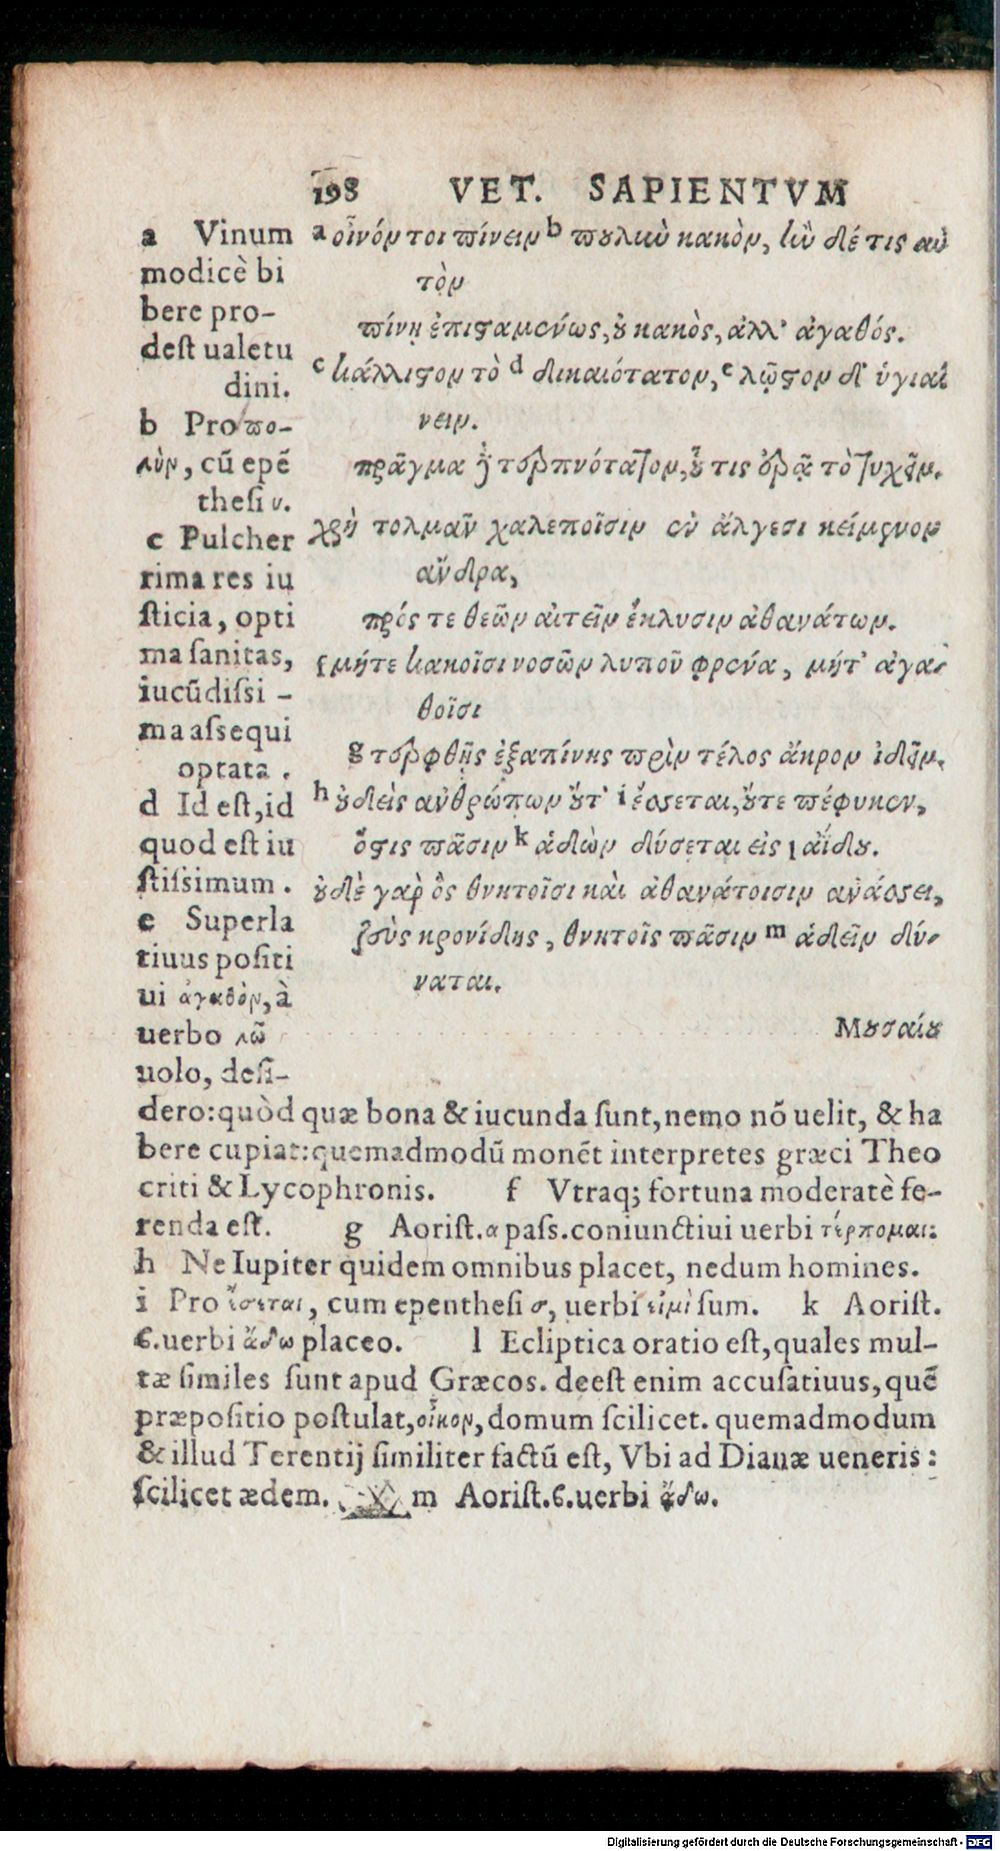 198 VET. SAPIENTVM
a οἶνόν τοι πίνειν b πουλὺν κακὸν, ἢν δέ τις αὐ
τὸν
πίνῃ ἐπισαμένως, οὐ κακὸς, ἀλλ' ἀγαθός.
c κάλλιστον τὸ d δικαιότατον, e λῷστον δ' ὑγιαί
νειν.
πρᾶγμα δὲ τερπνότατον, οὗ τις ἐρᾷ τὸ τυχεῖν.
χρὴ τολμᾶν χαλεποῖσιν ἐν ἄλγεσι κείμενον
ἄνδρα,
πρός τε θεῶν αἰτεῖν ἔκλυσιν ἀθανάτων.
f μήτε κακοῖσι νοσῶν λυποῦ φρένα, μήτ' ἀγα-
θοῖσι
g τερφθῇς ἐξαπίνης πρὶν τέλος ἄκρον ἰδεῖν.
h οὐδεὶς ἀνθρώπων οὔτ' i ἔσσεται, οὔτε πέφυκεν,
ὅστις πᾶσιν k ἁδὼν δύσεται εἰς l ἀΐδου.
οὐδὲ γὰρ ὃς θνητοῖσι καὶ ἀθανάτοισιν ἀνάσσει,
ζεὺς κρονίδης, θνητοῖς πᾶσιν m ἁδεῖν δύ-
ναται.
Μουσαίου
a Vinum
modicè bi
bere pro-
dest ualetu
dini.
b Pro πο-
λὺν, cũ epẽ
thesi υ.
c Pulcher
rima res iu
sticia, opti
ma sanitas,
iucũdissi-
ma assequi
optata.
d Id est, id
quod est iu
stissimum.
e Superla
tiuus positi
ui ἀγαθὸν, à
uerbo λῶ
uolo, desi-
dero: quòd quæ bona & iucunda sunt, nemo nõ uelit, & ha
bere cupiat: quemadmodũ monẽt interpretes græci Theo
criti & Lycophronis. f Vtraq; fortuna moderatè fe-
renda est. g Aorist. α pass. coniunctiui uerbi τέρπομαι:
h Ne Iupiter quidem omnibus placet, nedum homines.
i Pro ἔσεται, cum epenthesi σ, uerbi εἰμὶ sum. k Aorist.
ϐ. uerbi ἅδω placeo. l Ecliptica oratio est, quales mul-
tæ similes sunt apud Græcos. deest enim accusatiuus, quẽ
præpositio postulat, οἶκον, domum scilicet. quemadmodum
& illud Terentij similiter factũ est, Vbi ad Dianæ ueneris:
scilicet ædem. m Aorist. ϐ. uerbi ἅδω.
Digitalisierung gefördert durch die Deutsche Forschungsgemeinschaft - DFG